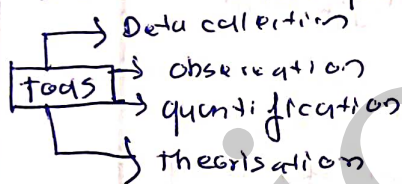 Data collection
tools
observation
quantification
theorisation